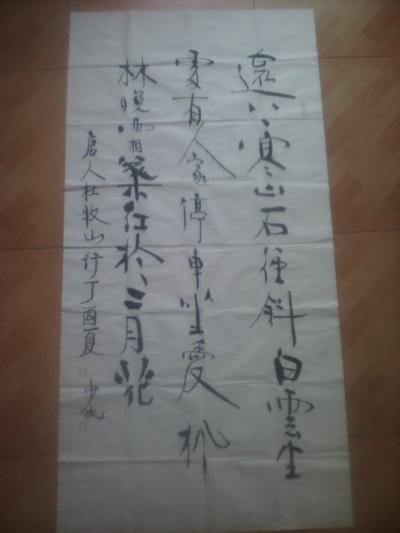 遠上寒山石徑斜白雲生
處有人家停車坐愛枫
林晚霜葉紅於二月花
唐人杜牧山行丁酉夏